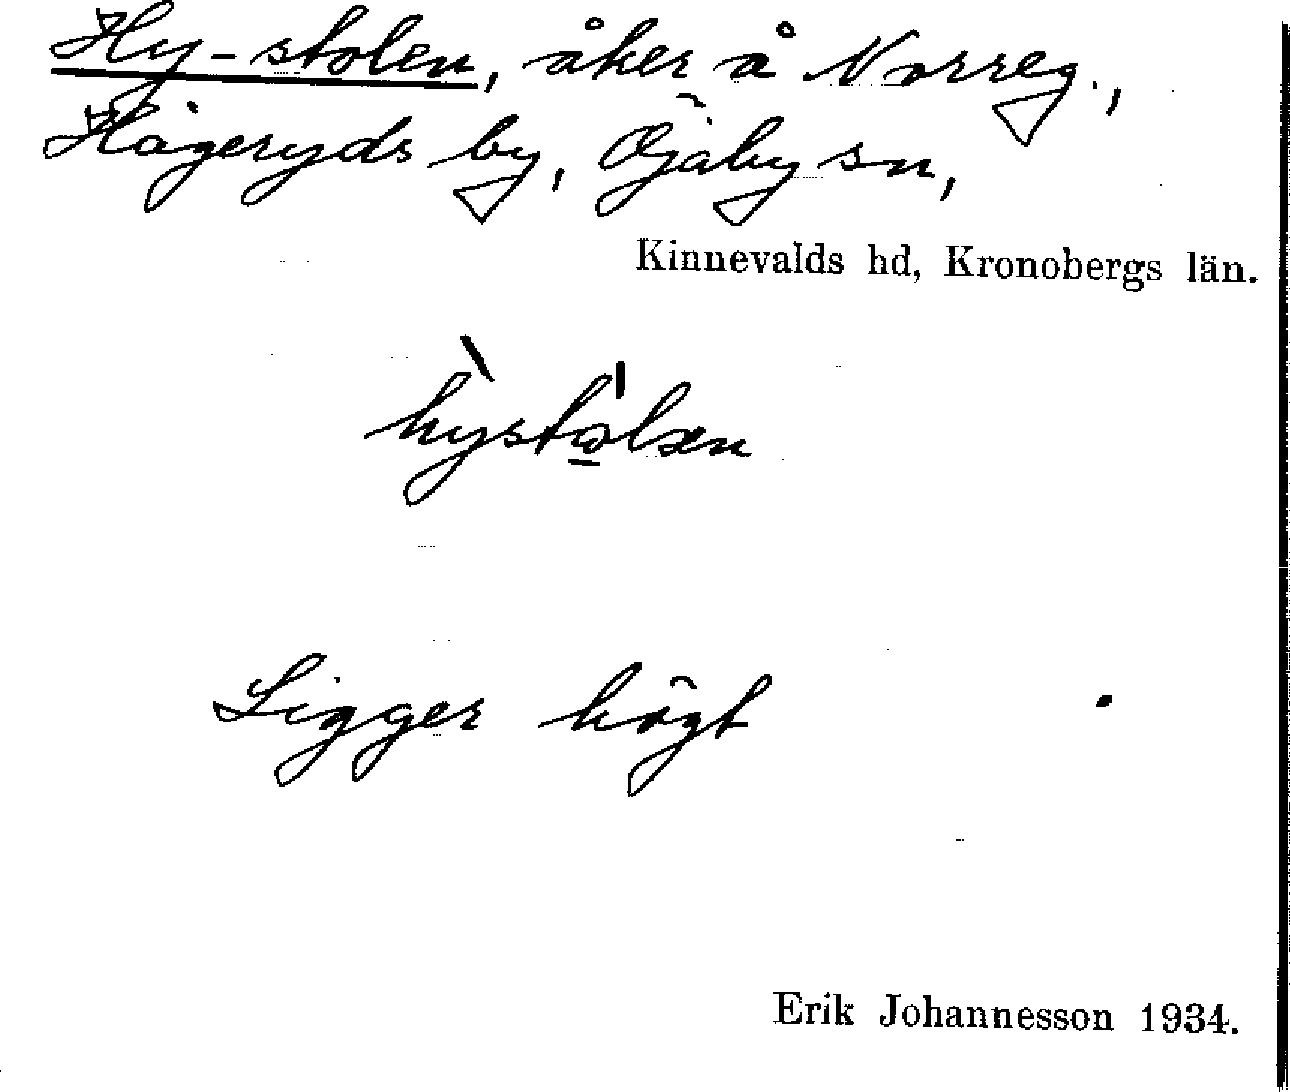 Hy-stolen, åker å Norreg.,
Hågeryds by, Öjaby sn,
Kinnevalds hd, Kronobergs län.
Ligger högt
Erik Johannesson 1934.